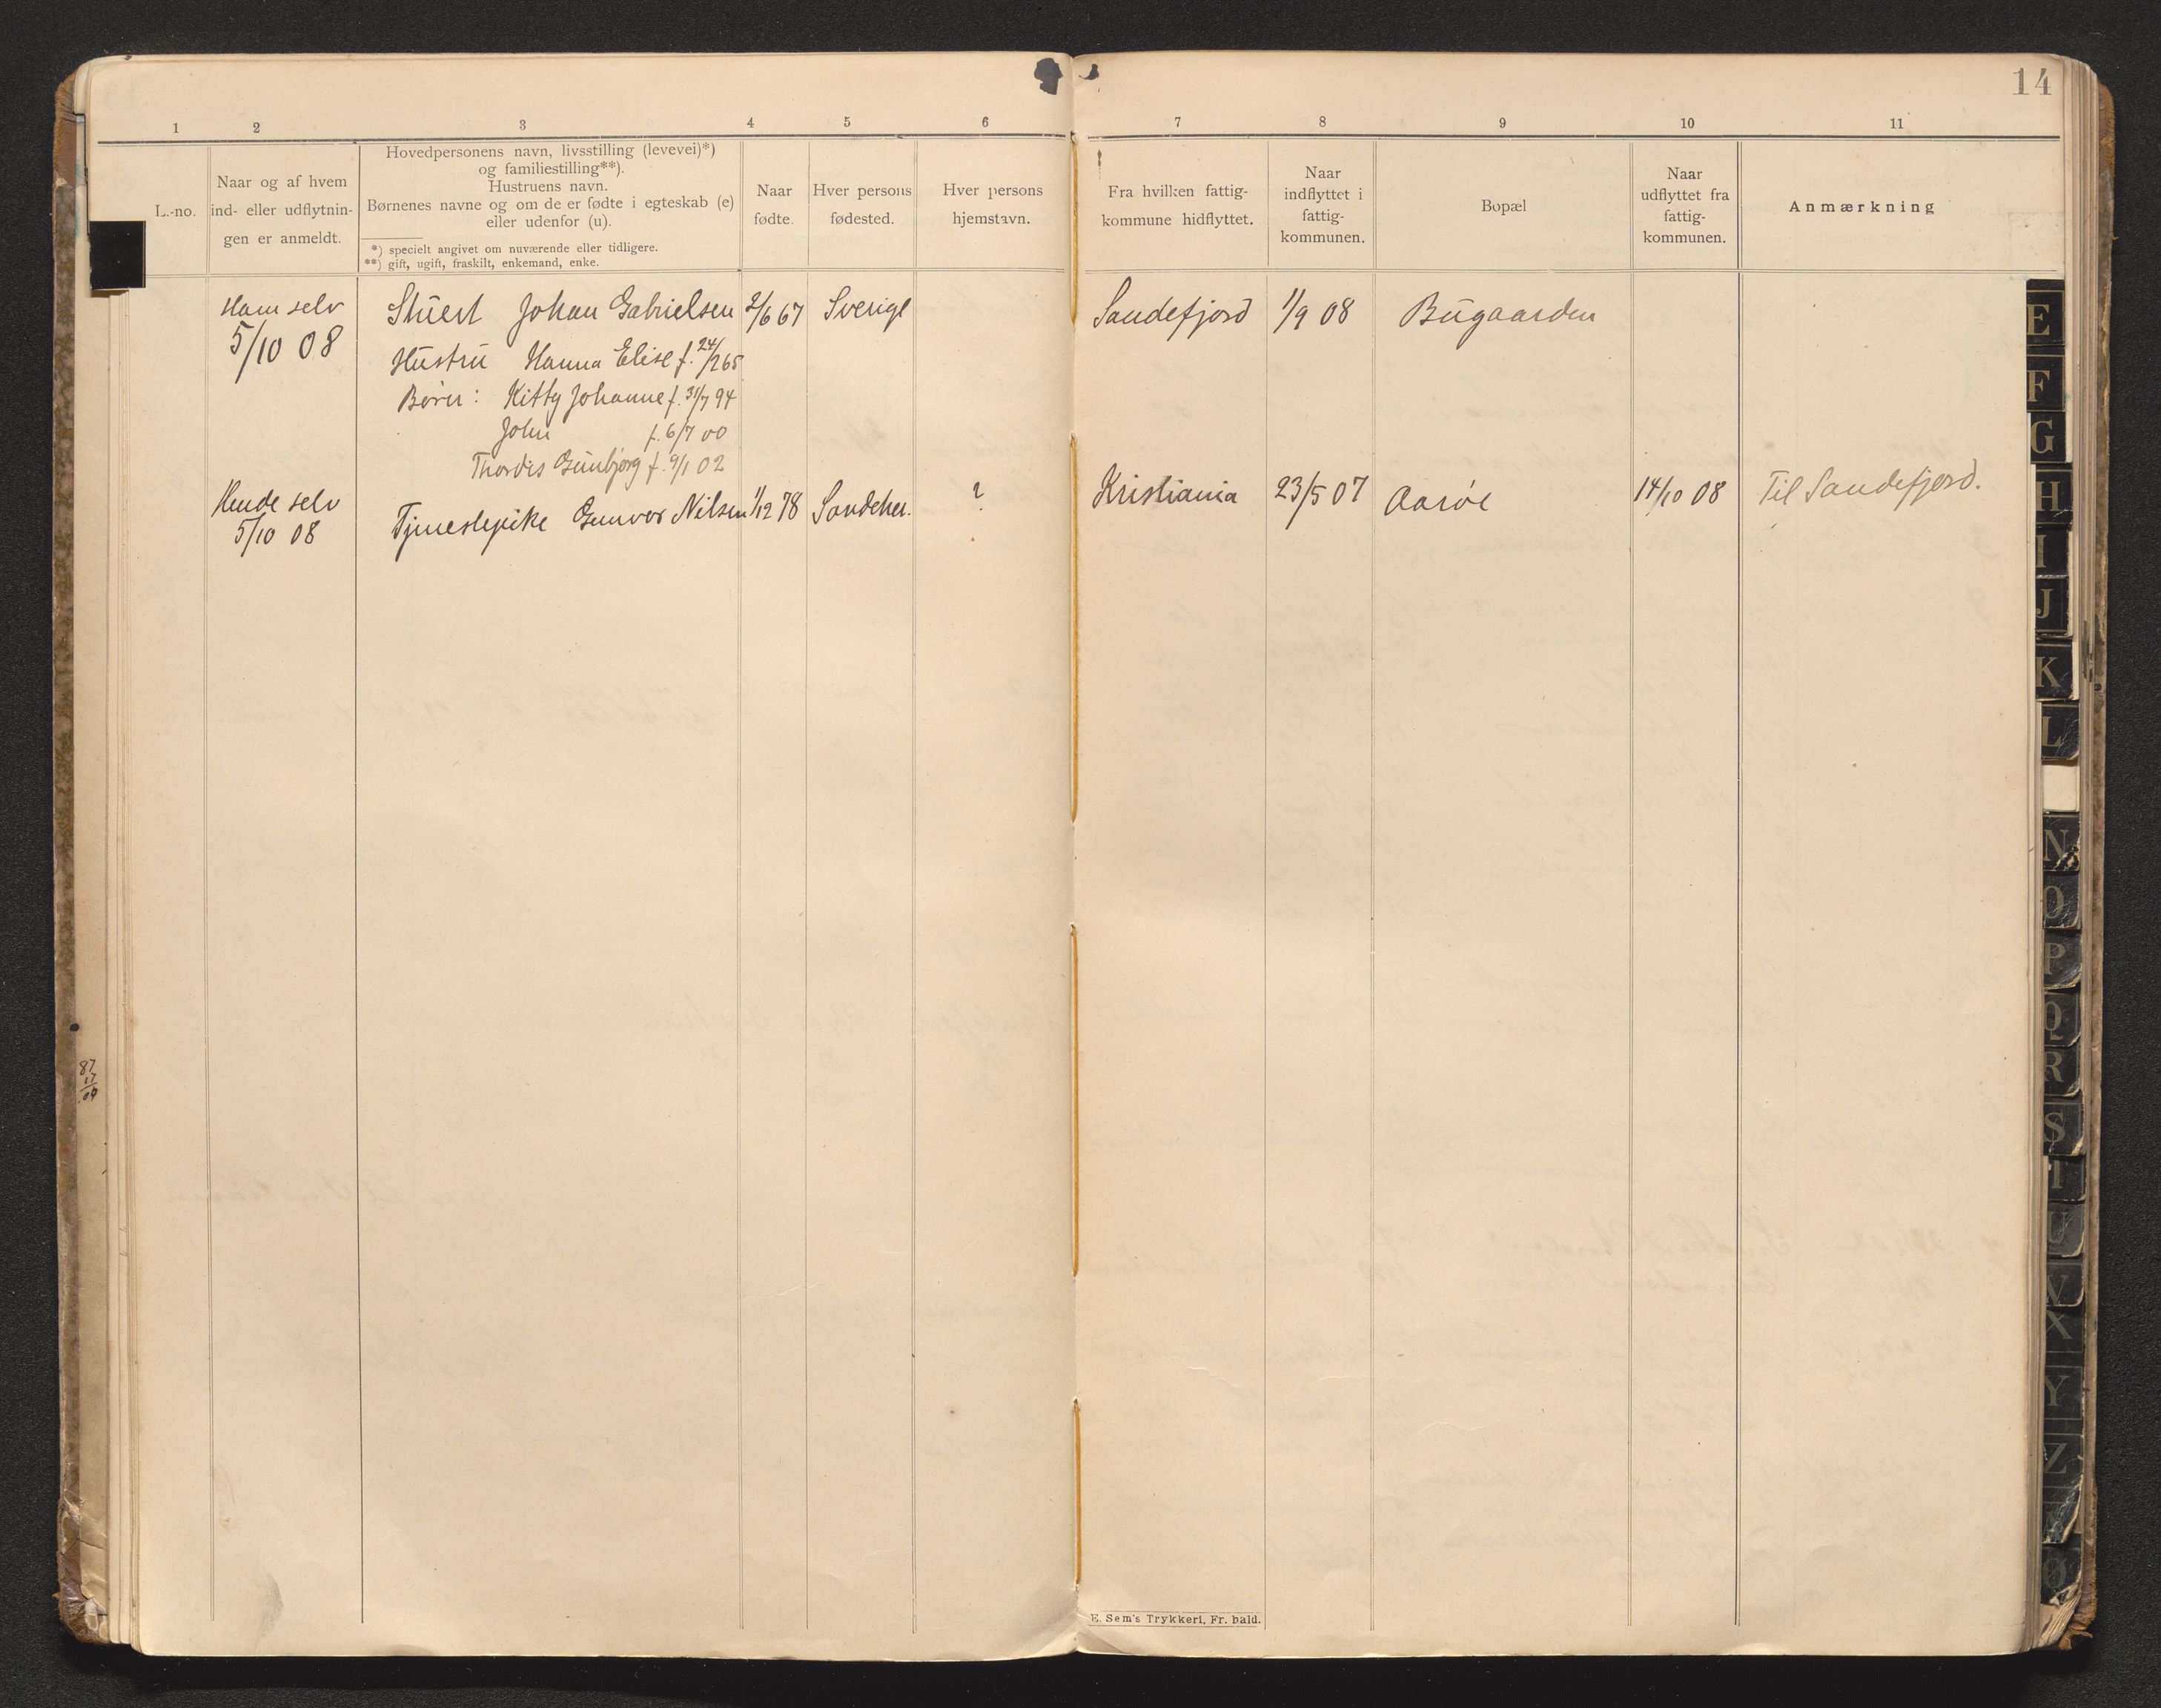 14
1 2 3 4 5 6 7 8 9 10 11
L.-no.
Naar og af hvem
ind- eller udflytnin-
gen er anmeldt.
Hovedpersonens navn, livsstilling (levevei)*)
og familiestilling**).
Hustruens navn.
Børnenes navne og om de er fødte i egteskab (e)
eller udenfor (u).
*) specielt angivet om nuværende eller tidligere.
**) gift, ugift, fraskilt, enkemand, enke.
Naar
fødte.
Hver persons
fødested.
Hver persons
hjemstavn.
Fra hvilken fattig-
kommune hidflyttet.
Naar
indflyttet i
fattig-
kommunen.
Bopæl
Naar
udflyttet fra
fattig-
kommunen.
Anmærkning
Ham selv Stuert Johan Gabrielsen 2/6 67 Sverige Sandefjord 1/9 08 Bugaarden
5/10 08
Hustru Hanna Elise f. 24/2 65
Børn: Kitty Johanne f. 31/7 94
John f. 6/7 00
Thordis Gunbjørg f. 9/1 02
Hende selv Tjenestepike Gunvor Nilsen 1/12 78 Sandeher. ? Kristiania 23/5 07 Aarøe 14/10 08 Til Sandefjord.
5/10 08
87
17
09
E. Sem's Trykkeri, Fr. hald.
E
F
G
H
I
J
K
L
N
O
P
Q
R
S
T
U
V
X
Y
Z
Ø